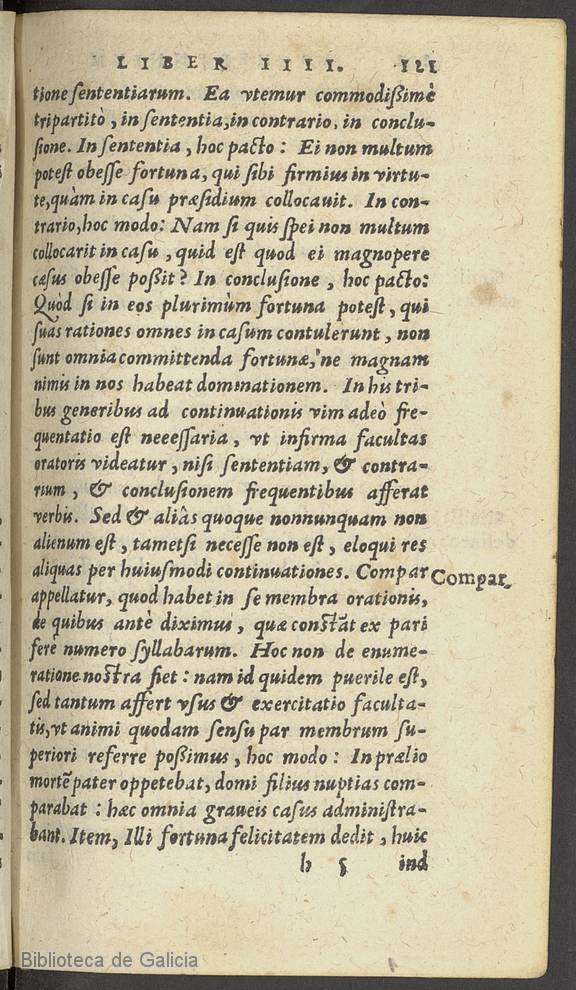 LIBER IIII. 121
tione sententiarum. Ea vtemur commodißimè
tripartitò, in sententia, in contrario, in conclu-
sione. In sententia, hoc pacto: Ei non multum
potest obesse fortuna, qui sibi firmius in virtu-
te, quàm in casu præsidium collocauit. In con-
trario, hoc modo: Nam si quis spei non multum
collocarit in casu, quid est quod ei magnopere
cæsus obesse poßit? In conclusione, hoc pacto:
Quòd si in eos plurimùm fortuna potest, qui
suas rationes omnes in casum contulerunt, non
sunt omnia committenda fortunæ, ne magnam
nimis in nos habeat dominationem. In his tri-
bus generibus ad continuationis vim adeò fre-
quentatio est neeessaria, vt infirma facultas
oratoris videatur, nisi sententiam, & contra-
rium, & conclusionem frequentibus afferat
verbis. Sed & aliâs quoque nonnunquam non
alienum est, tametsi necesse non est, eloqui res
aliquas per huiusmodi continuationes. Compar
Compar.
appellatur, quod habet in se membra orationis,
de quibus antè diximus, quæ constāt ex pari
ferè numero syllabarum. Hoc non de enume-
ratione nostra fiet: nam id quidem puerile est,
sed tantum affert vsus & exercitatio faculta-
tis, vt animi quodam sensu par membrum su-
periori referre poßimus, hoc modo: In prælio
mortē pater oppetebat, domi filius nuptias com-
parabat: hæc omnia graueis casus administra-
bant. Item, Illi fortuna felicitatem dedit, huic
h 5 ind
Biblioteca de Galicia